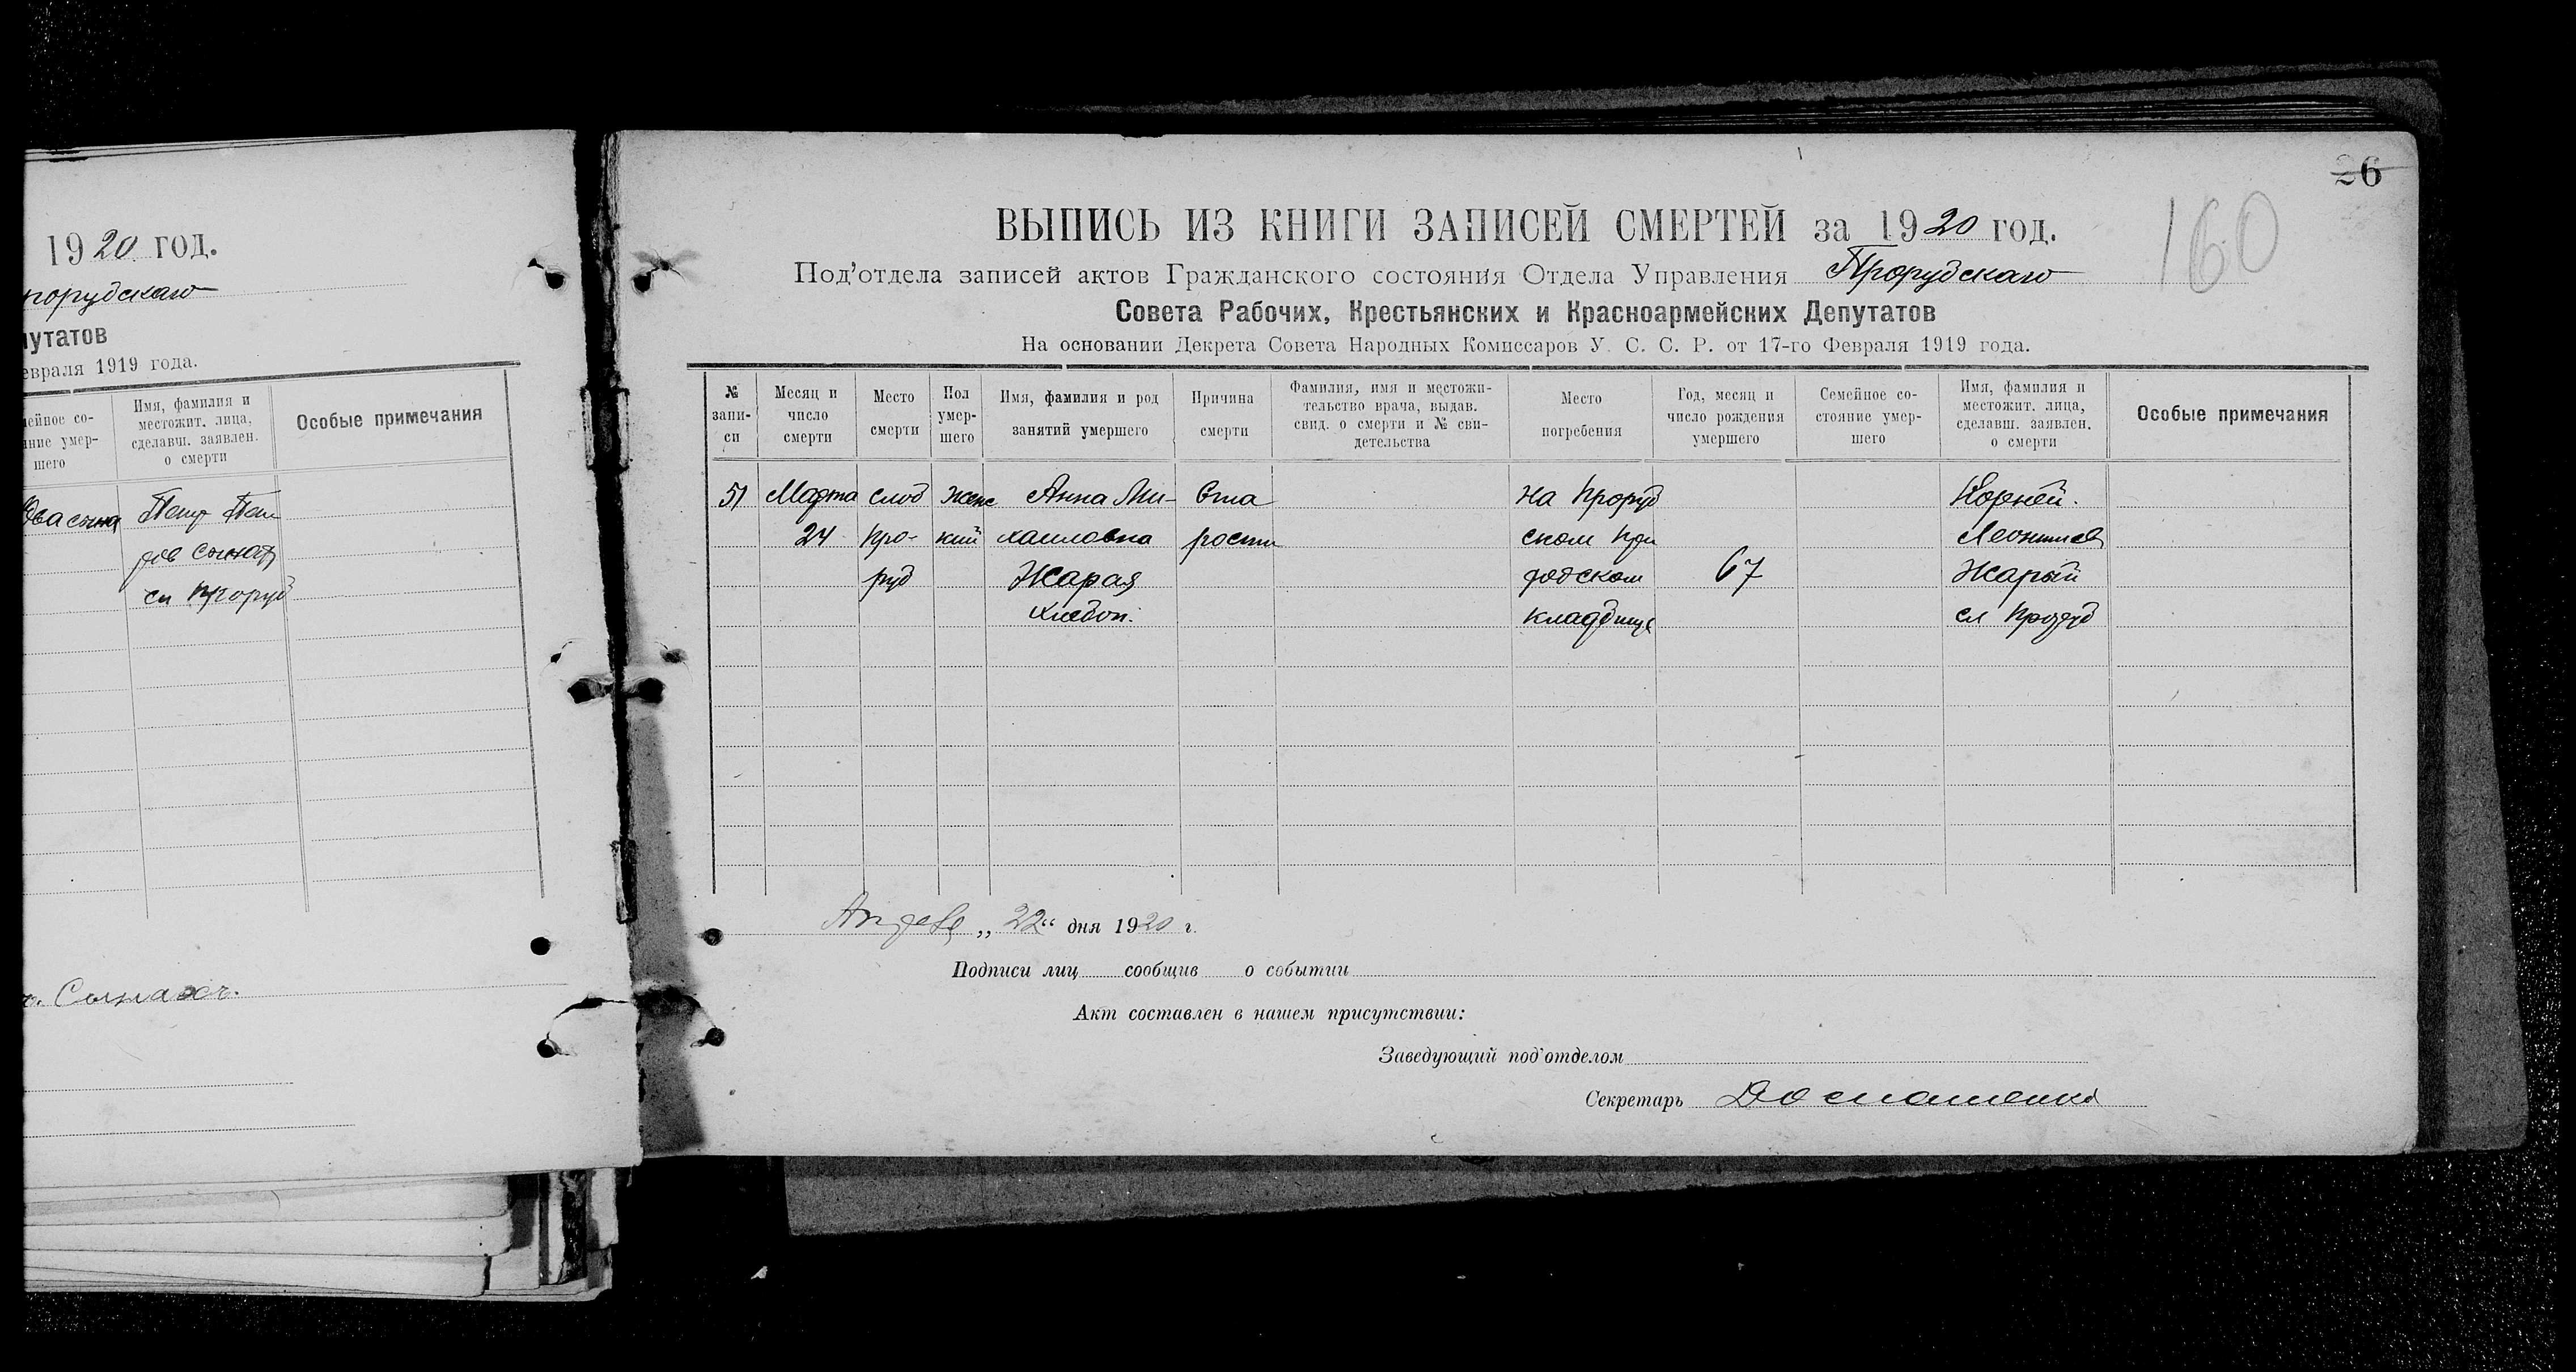 1920 год.
порудскаго
путатов
евраля 1919 года.
мейное со-
яние умер-
шего
Имя, фамилия и
местожит. лица,
сделавш. заявлен.
о смерти
Особые примечания
Два сына
Петр
сл Проруб
26
160
ВЫПИСЬ ИЗ КНИГИ ЗАПИСЕЙ СМЕРТЕЙ за 1920 год.
Под'отдела записей актов Гражданского состояния Отдела Управления Прорубскаго
Совета Рабочих, Крестьянских и Красноармейских Депутатов
На основании Декрета Совета Народных Комиссаров У. С. С. Р. от 17-го Февраля 1919 года.
№
запи-
си
Месяц и
число
смерти
Место
смерти
Пол
умер-
шего
Имя, фамилия и род
занятий умершего
Причина
смерти
Фамилия, имя и местожи-
тельство врача, выдав.
свид. о смерти и № сви-
детельства
Место
погребения
Год, месяц и
число рождения
умершего
Семейное со-
стояние умер-
шего
Имя, фамилия и
местожит. лица,
сделавш. заявлен.
о смерти
Особые примечания
51 Марта слоб Женс Анна Ми- Ста на Проруб Корней.
24 Про- кий хаиловна рости ском При Леонтиев
руб Жарая ходском 67 Жарый
хлебоп. кладбище сл Проруб
„22“ дня 1920 г.
Подписи лиц сообщив о событии
Акт составлен в нашем присутствии:
Заведующий под'отделом
Секретарь